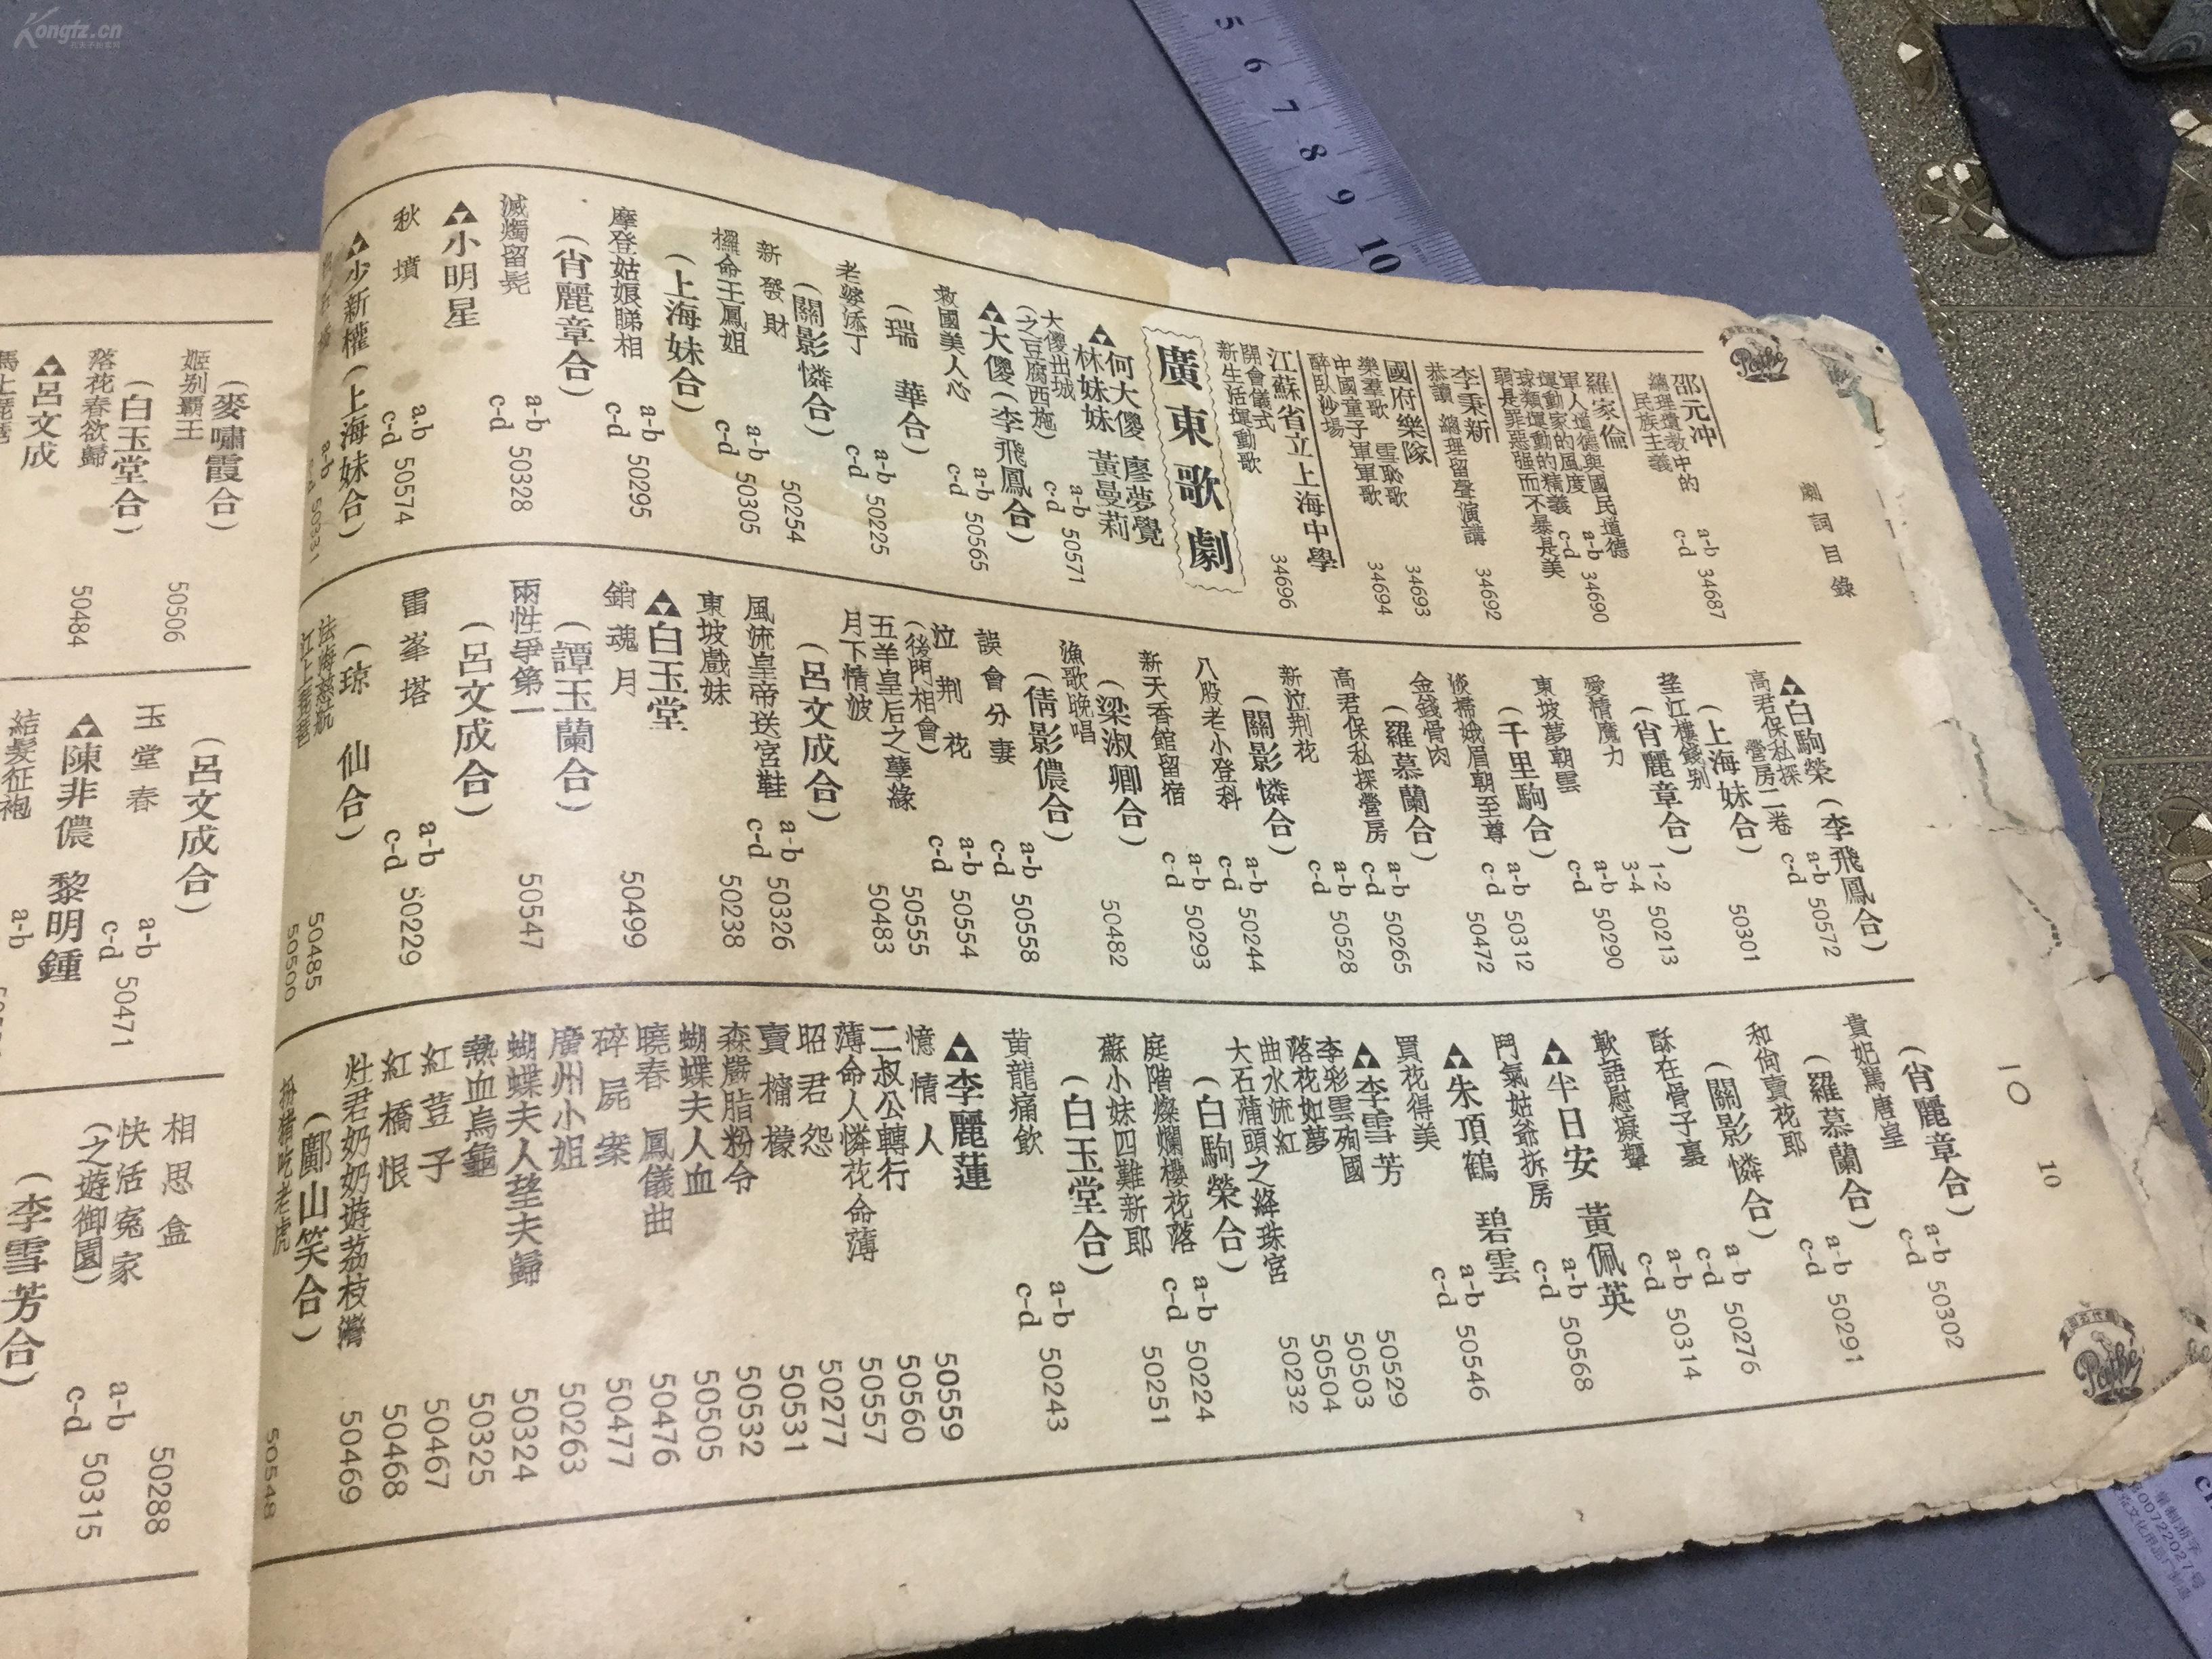 劇詞目錄
一〇
10
邵元冲
總理遺教中的
民族主義 a-b c-d 34687
羅家倫
軍人道德與國民道德 a-b 34690
運動家的風度 c-d
球類運動的精義
弱是罪惡強而不暴是美
李秉新
恭讀 總理留聲演講 34692
國府樂隊
樂羣歌 雪恥歌 34693
中國童子軍軍歌 34694
醉臥沙場
江蘇省立上海中學
開會儀式 34696
新生活運動歌
廣東歌劇
何大傻 廖夢覺
林妹妹 黃曼莉
大傻出城 a-b 50571
(之豆腐西施) c-d
大傻(李飛鳳合)
救國美人心 a-b c-d 50565
(瑞華合)
老婆添丁 a-b c-d 50225
(關影憐合)
新發財 50254
攞命王鳳姐 a-b c-d 50305
(上海妹合)
摩登姑娘睇相 a-b c-d 50295
(肖麗章合)
滅燭留髡 a-b c-d 50328
小明星
秋墳 a-b c-d 50574
少新權(上海妹合)
a-b c-d 50331
白駒榮(李飛鳳合)
高君保私探
營房二卷 a-b c-d 50572
(上海妹合)
垄江樓餞别 50301
(肖麗章合)
愛情魔力 1-2 3-4 50213
東坡夢朝雲 a-b c-d 50290
(千里駒合)
淡掃娥眉朝至尊 a-b c-d 50312
金錢骨肉 50472
(羅慕蘭合)
高君保私探營房 a-b c-d 50265
新泣荆花 a-b c-d 50528
(關影憐合)
八股老小登科 a-b c-d 50244
新天香館留宿 a-b c-d 50293
(梁淑卿合)
漁歌晚唱 50482
(倩影儂合)
誤會分妻 a-b c-d 50558
泣荆花 a-b 50554
(後門相會) c-d
五羊皇后之孽緣 50555
月下情波 50483
(呂文成合)
風流皇帝送宮鞋 a-b c-d 50326
東坡戲妹 50238
白玉堂
銷魂月 50499
(譚玉蘭合)
兩性爭第一 50547
(呂文成合)
雷峯塔 a-b c-d 50229
(琼仙合)
50485
江上琵琶 50500
(肖麗章合)
貴妃罵唐皇 a-b c-d 50302
(羅慕蘭合)
和尙賣花耶 a-b c-d 50291
(關影憐合)
酥在骨子裏 a-b c-d 50276
軟語慰癡顰 a-b c-d 50314
半日安 黃佩英
鬥氣姑爺拆房 a-b c-d 50568
朱頂鶴 碧雲
買花得美 a-b c-d 50546
李雪芳
李彩雲殉國 50529
落花如夢 50503
曲水流紅 50504
大石蒲頭之絳珠宮 50232
(白駒榮合)
庭階燦爛櫻花落 a-b c-d 50224
蘇小妹四難新郎 50251
(白玉堂合)
黃龍痛飲 a-b c-d 50243
李麗蓮
憶情人 50559
二叔公轉行 50560
薄命人憐花命薄 50557
昭君怨 50277
賣檳檬 50531
森嚴脂粉令 50532
蝴蝶夫人血 50505
曉春 鳳儀曲 50476
碎屍案 50477
廣州小姐 50263
蝴蝶夫人望夫歸 50324
熱血烏龜 50325
紅荳子 50467
紅橋恨 50468
灶君奶奶遊荔枝灣 50469
(鄺山笑合)
扮豬吃老虎 50548
(麥嘯霞合)
姬别覇王 50506
(白玉堂合)
落花春欲歸 50484
呂文成
馬上琵琶
(呂文成合)
玉堂春 a-b c-d 50471
陳非儂 黎明鍾
結髮征袍 a-b
相思盒 50288
快活寃家 a-b
(之遊御園) c-d 50315
(李雪芳合)
5 6 7 8 9 10
Pathe
Pathe
Kongfz.cn